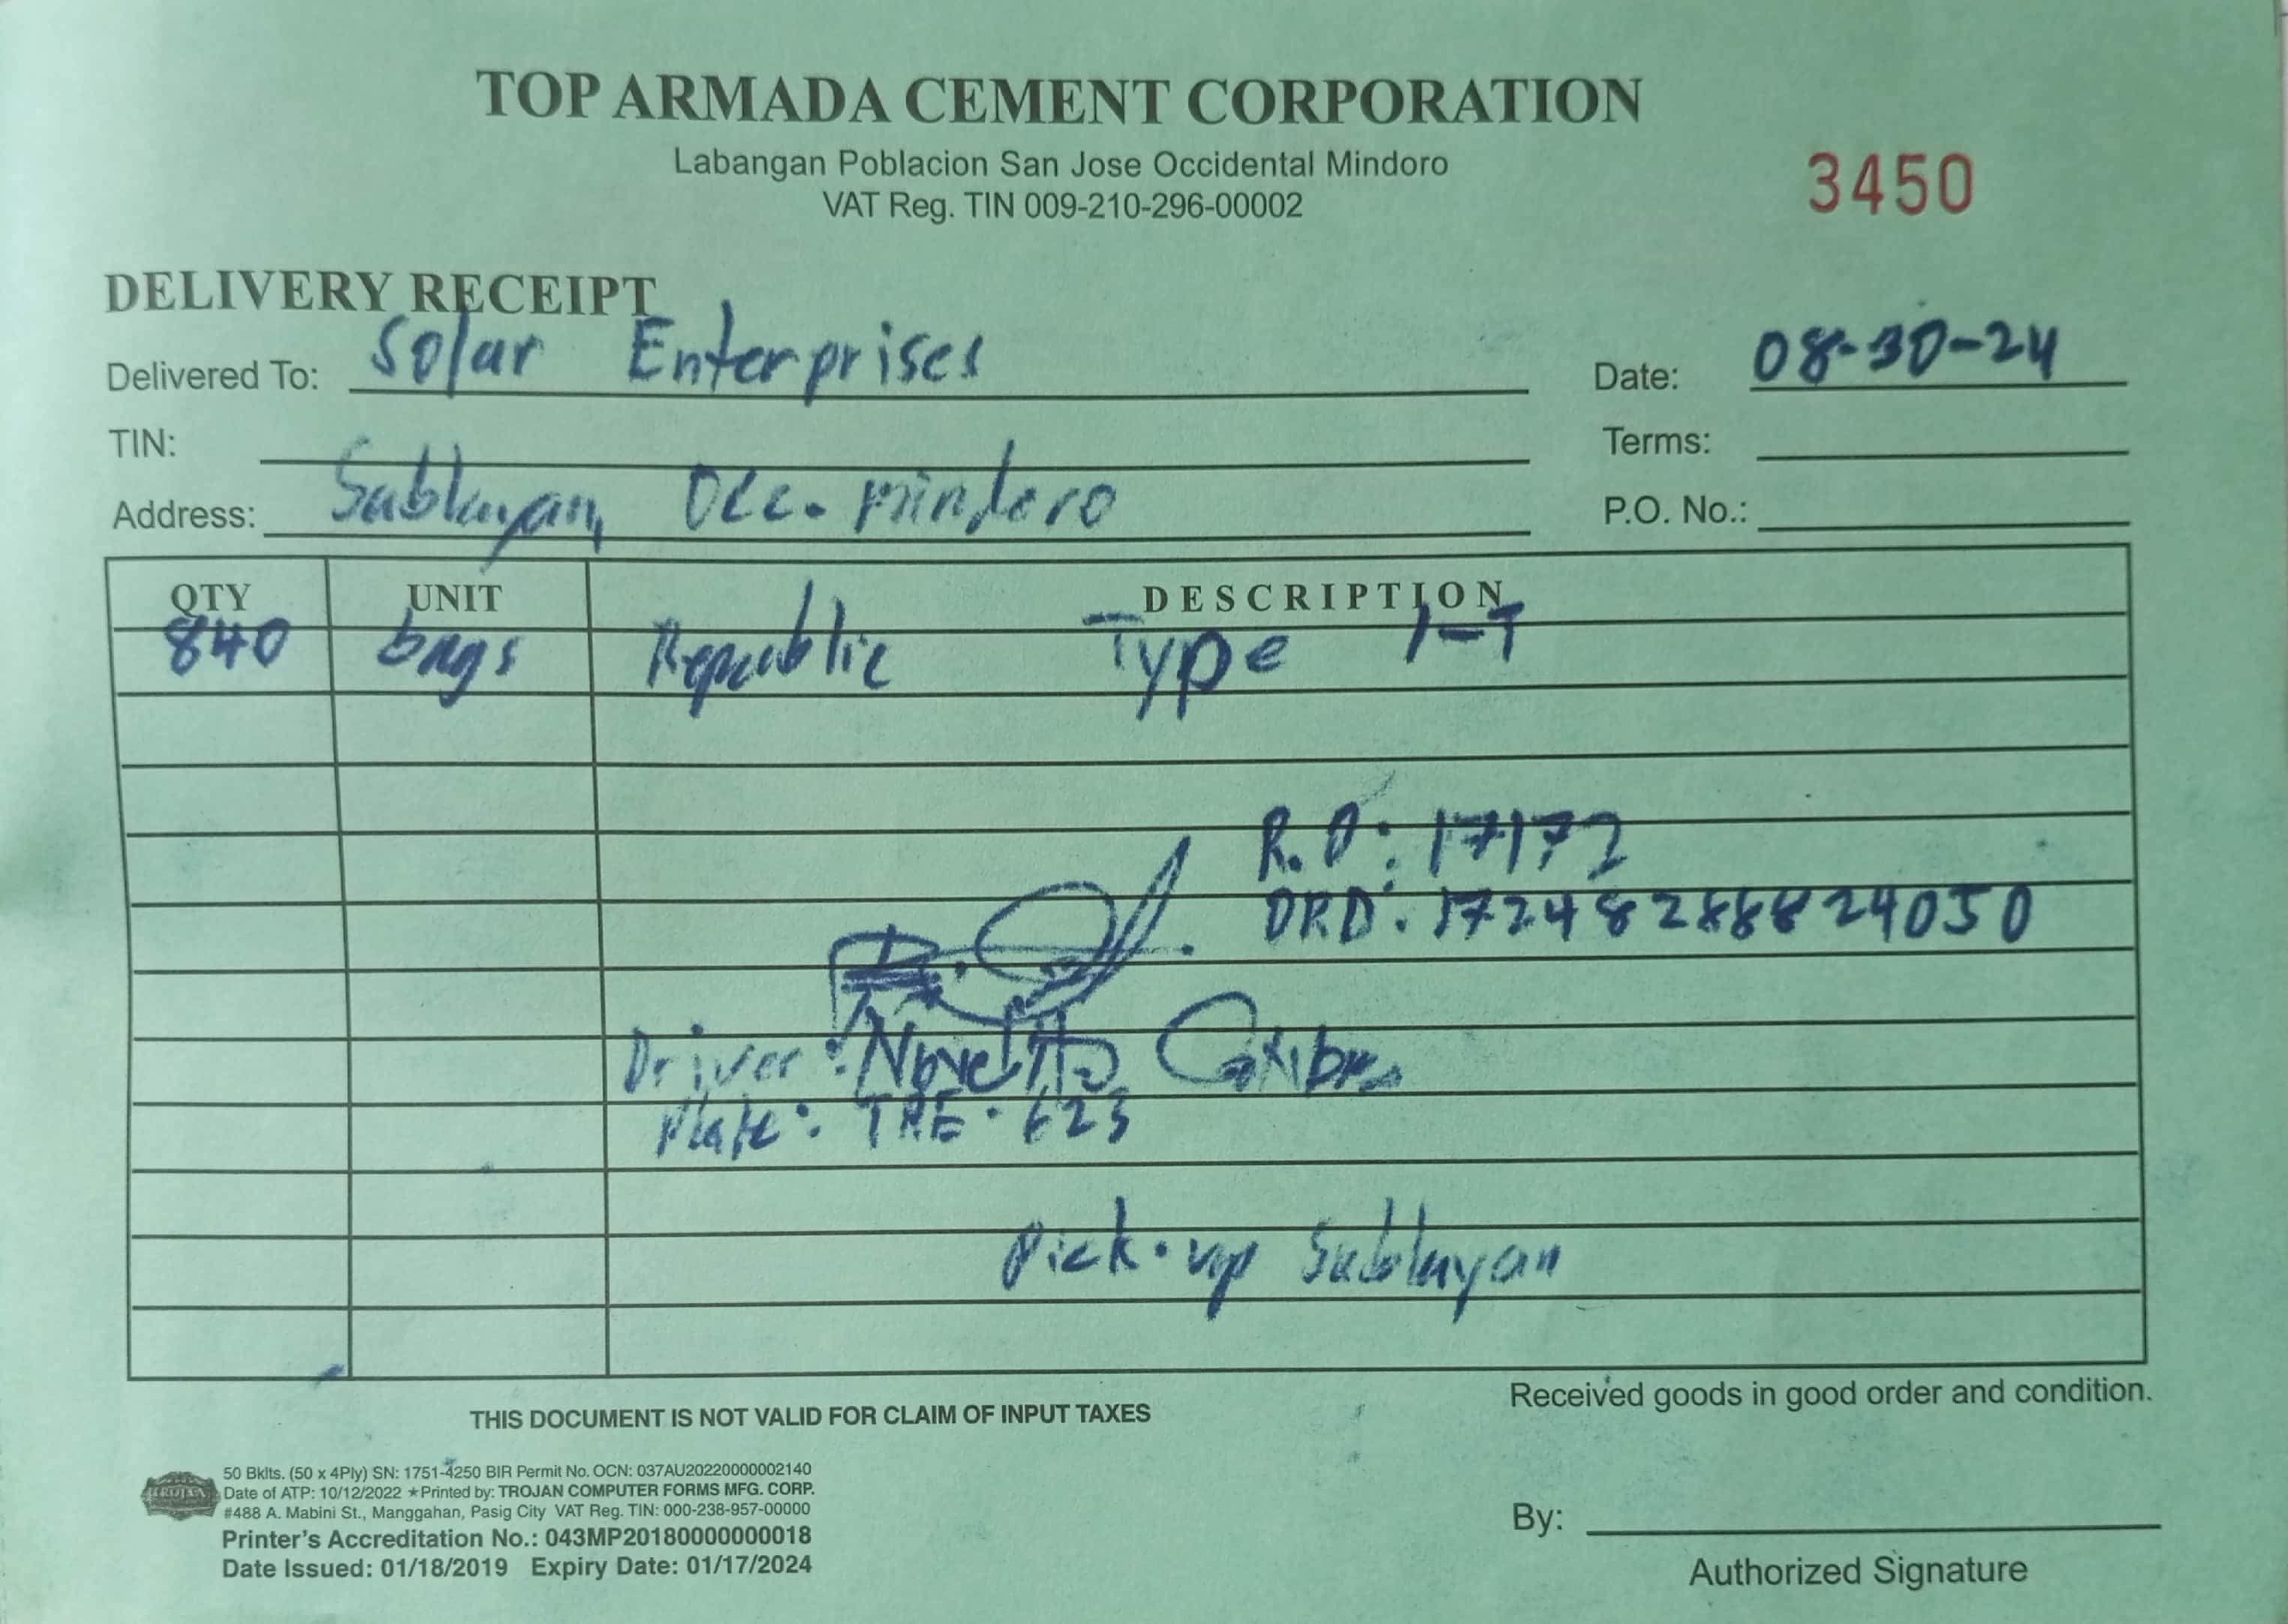 TOP ARMADA CEMENT CORPORATION
Labangan Poblacion San Jose Occidental Mindoro
VAT Reg. TIN 009-210-296-00002
3450
DELIVERY RECEIPT
Delivered To: Solar Enterprises
Date: 08-30-24
TIN:
Terms:
Address: Sablayan, Occ. Mindoro
P.O. No.:
QTY UNIT DESCRIPTION
840 bags Republic Type 1-T
R.O: 17172
ORD: 1724828882405 0
Driver: Novelito
Plate: TAE-623
Pick-up Sablayan
THIS DOCUMENT IS NOT VALID FOR CLAIM OF INPUT TAXES
Received goods in good order and condition.
50 Bklts. (50 x 4Ply) SN: 1751-4250 BIR Permit No. OCN: 037AU20220000002140
Date of ATP: 10/12/2022 ★Printed by: TROJAN COMPUTER FORMS MFG. CORP.
#488 A. Mabini St., Manggahan, Pasig City VAT Reg. TIN: 000-238-957-00000
Printer's Accreditation No.: 043MP20180000000018
Date Issued: 01/18/2019 Expiry Date: 01/17/2024
TROJAN
By:
Authorized Signature